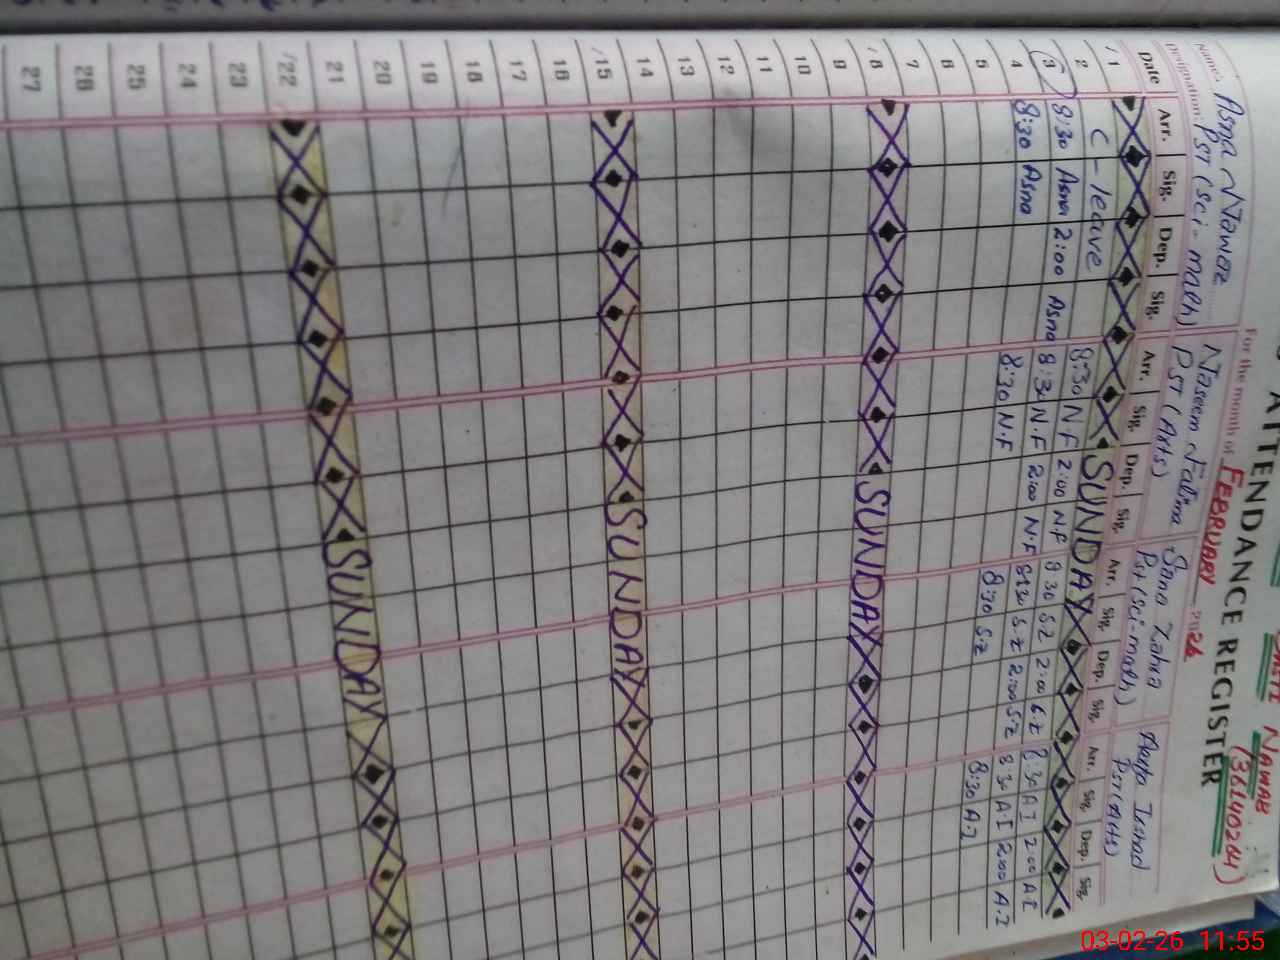 ATTENDANCE REGISTER
NAWAB (36140204)
For the month of FEBRUARY 2026
Name: Asna Nawaz Naseem Fatima Sana Zahra
Designation: PST (Sci-math) PST (Arts) PST (Sci-math) PST (Arts)
Date Arr. Sig. Dep. Sig. Arr. Sig. Dep. Sig. Arr. Sig. Dep. Sig. Arr. Sig. Dep. Sig.
1 SUNDAY
2 C-leave 8:30 N.F 2:00 N.F 8:30 S.Z 2:00 S.Z 8:30 A.I 2:00 A.I
3 8:30 Asna 2:00 Asna 8:30 N.F 2:00 N.F 8:30 S.Z 2:00 S.Z 8:30 A.I 2:00 A.I
4 8:30 Asna 8:30 N.F 8:30 S.Z 8:30 A.I
5
6
7
8 SUNDAY
9
10
11
12
13
14
15 SUNDAY
16
17
18
19
20
21
22 SUNDAY
23
24
25
26
27
03-02-26 11:55